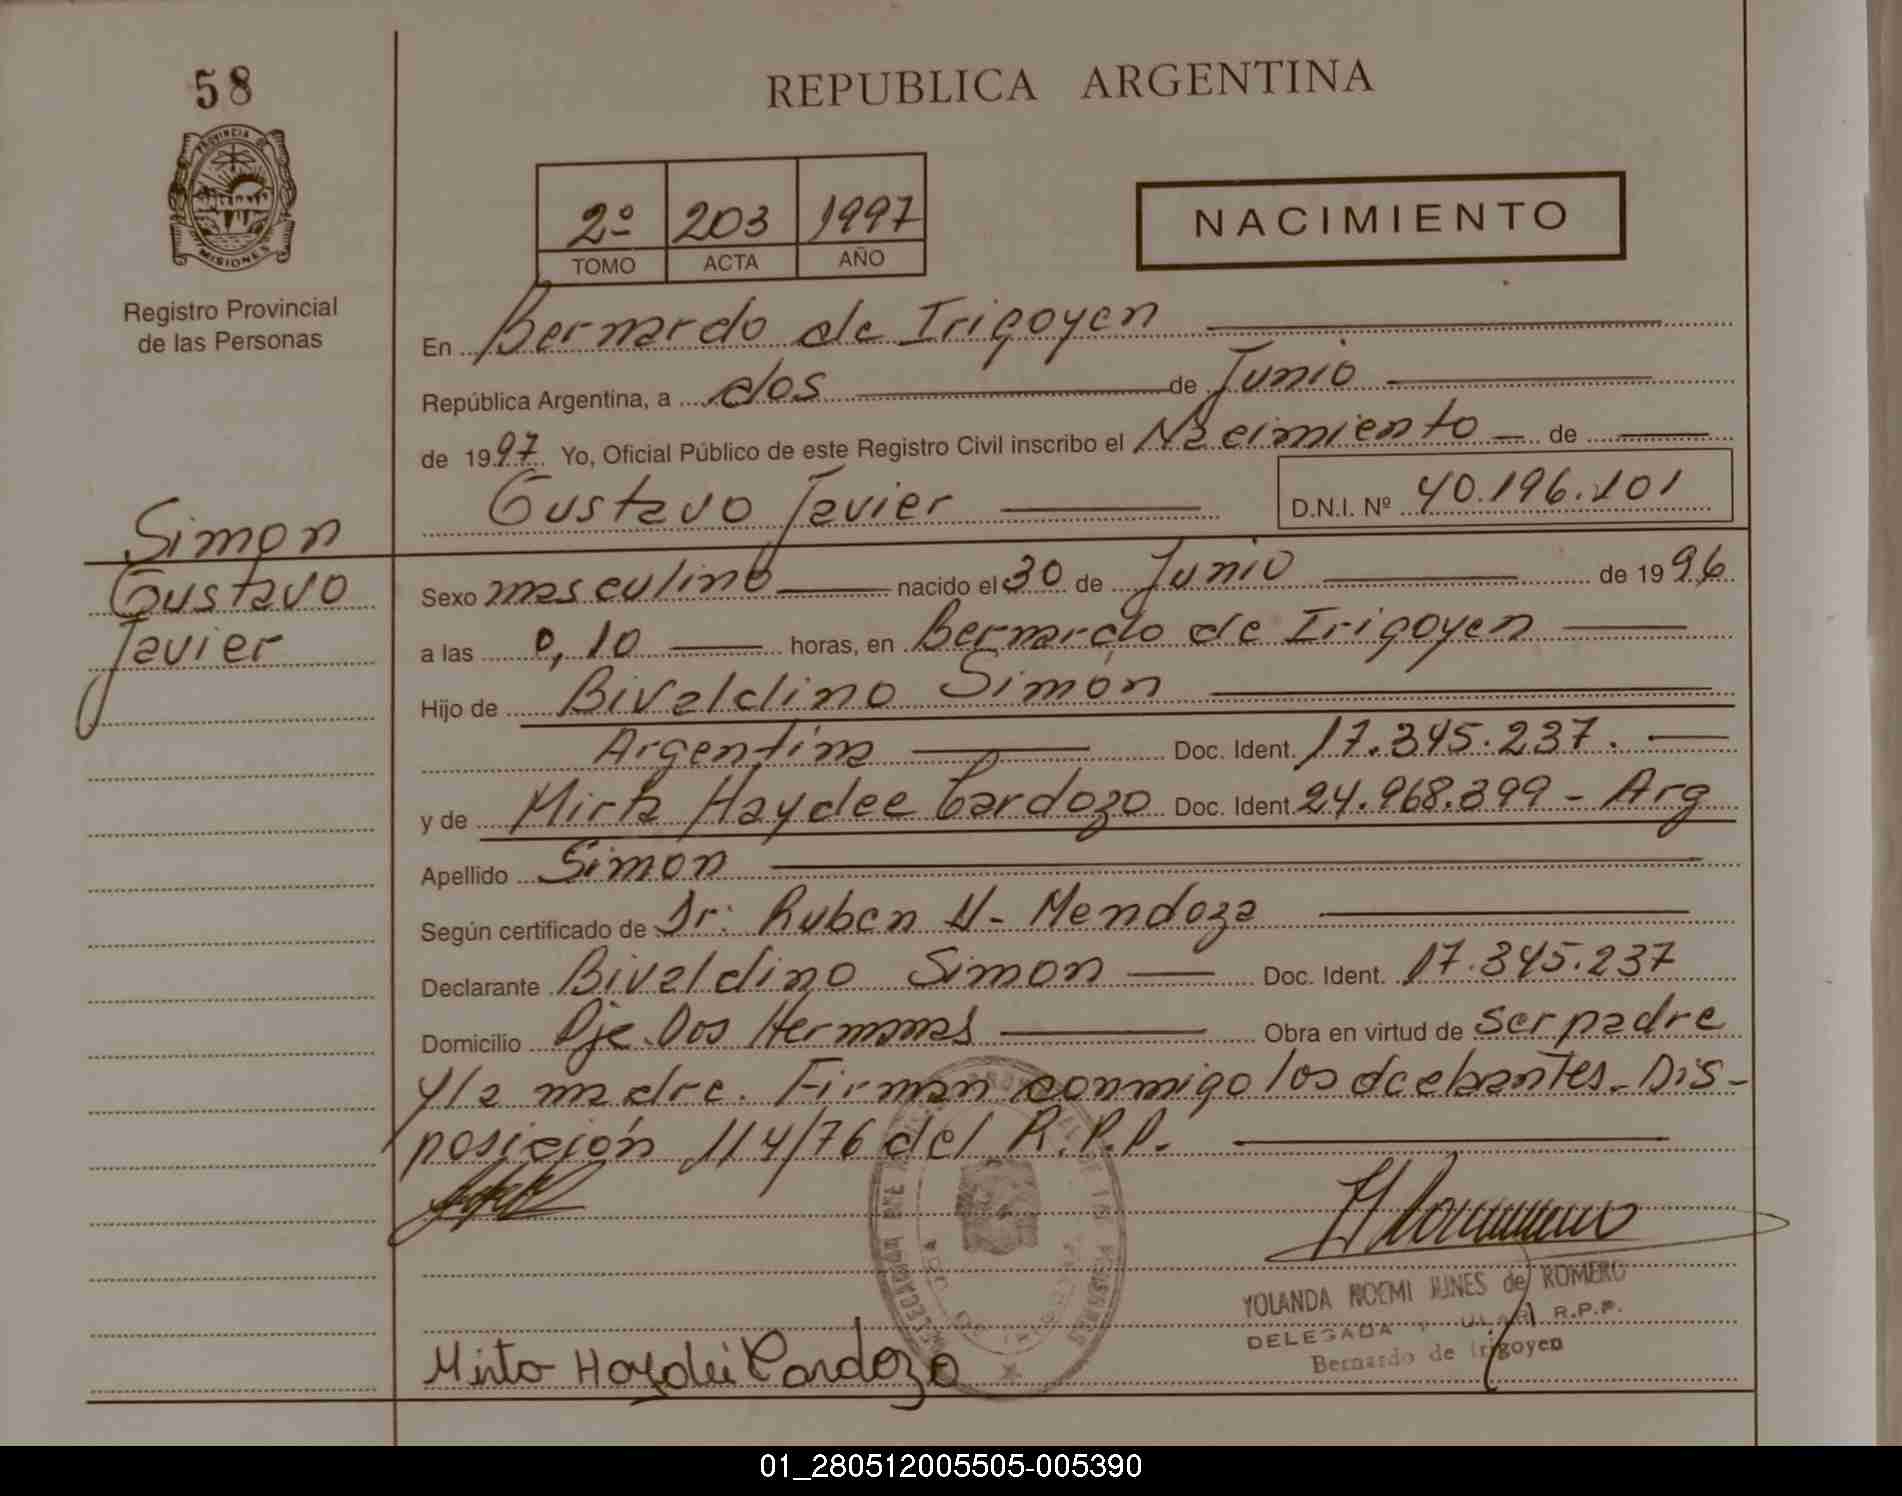 58
REPUBLICA ARGENTINA
PROVINCIA DE
MISIONES
2º 203 1997
TOMO ACTA AÑO
NACIMIENTO
Registro Provincial
de las Personas
En Bernardo de Irigoyen
República Argentina, a dos de Junio
de 1997 Yo, Oficial Público de este Registro Civil inscribo el Nacimiento de
Gustavo Javier D.N.I. Nº 40.196.101
Simon
Gustavo
Javier
Sexo masculino nacido el 30 de Junio de 1996
a las 0,10 horas, en Bernardo de Irigoyen
Hijo de Bivaldino Simón
Argentina Doc. Ident. 17.345.237.
y de Mirta Haydee Cardozo Doc. Ident. 24.968.399 - Arg
Apellido Simon
Según certificado de Dr: Ruben N- Mendoza
Declarante Bivaldino Simon Doc. Ident. 17.345.237
Domicilio Pje. Dos Hermanas Obra en virtud de ser padre
y la madre. Firman conmigo los dcebantes. Dis-
posición 114/76 del R.P.P.
YOLANDA NOEMI JUNES de ROMERO
DELEGADA R.P.P.
Bernardo de Irigoyen
Mirta Haydeé Cardozo
01_280512005505-005390